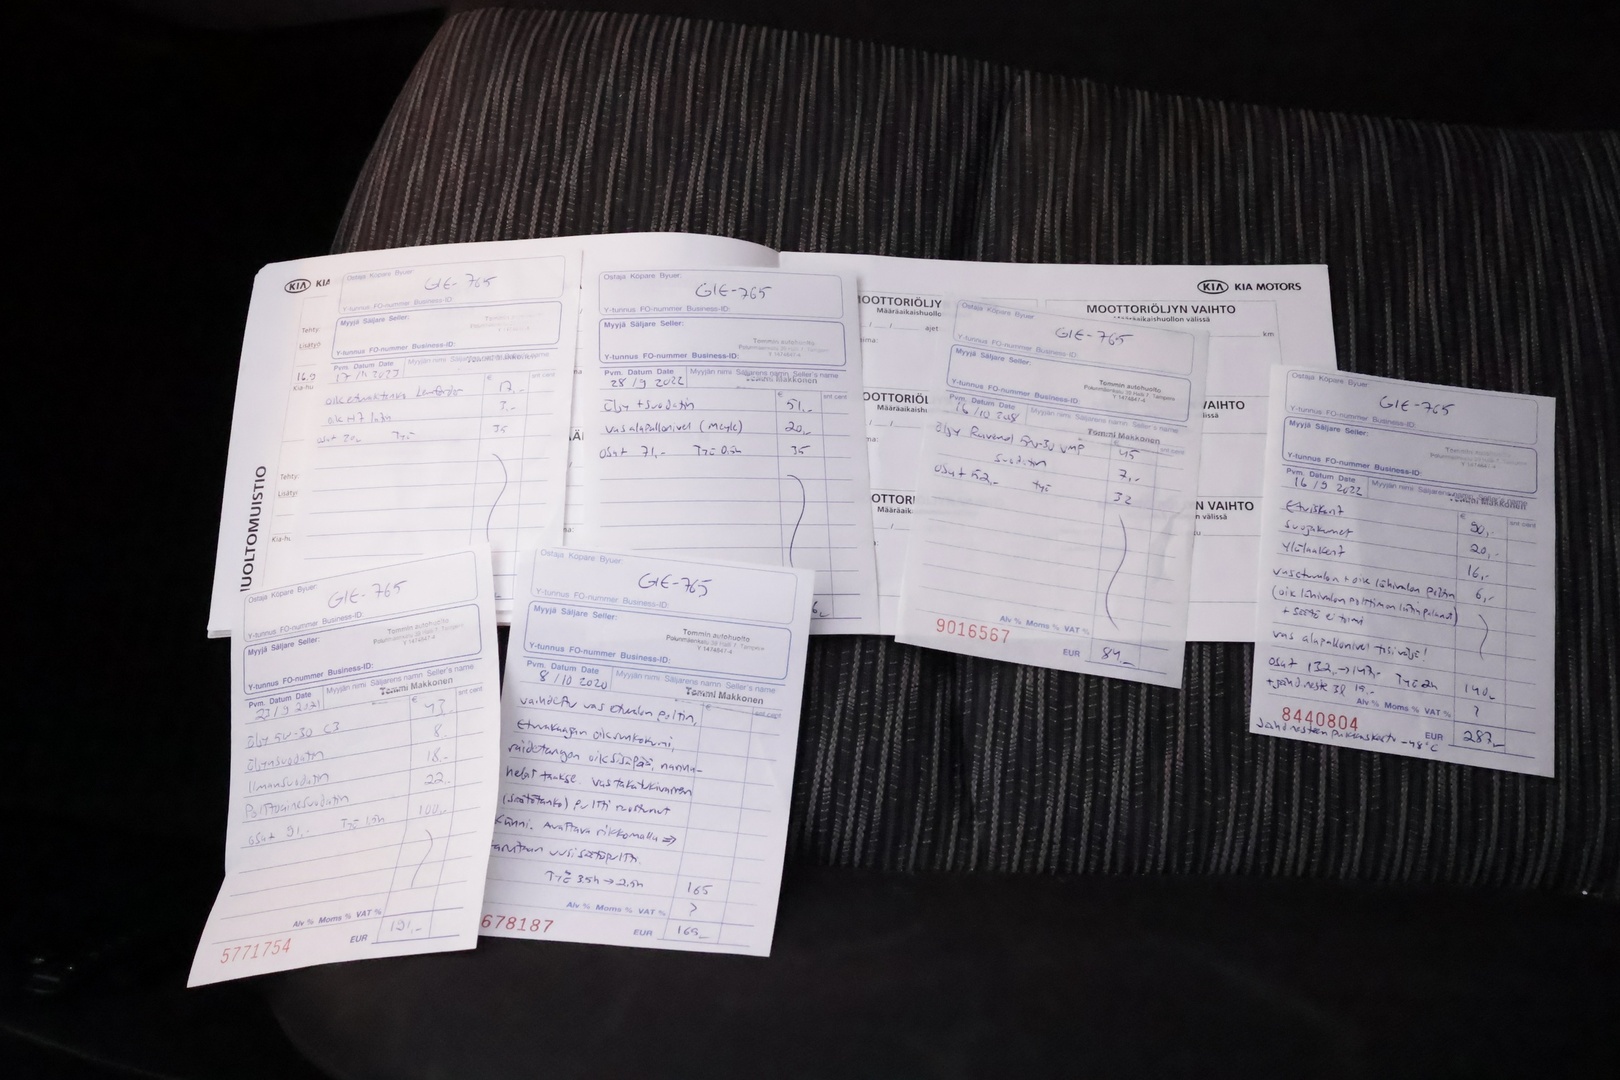 KIA KIA
Tehty:
Lisätyö
16.9
Kia-hu
Tehty:
Lisätyö
Kia-hu
HUOLTOMUISTIO
Ostaja Köpare Byuer:
GIE-765
Y-tunnus FO-nummer Business-ID:
Myyjä Säljare Seller:
Y-tunnus FO-nummer Business-ID:
Pvm. Datum Date
oik etuvalo
12,-
oik H7
7,-
Työ 35
Ostaja Köpare Byuer:
GIE-765
Y-tunnus FO-nummer Business-ID:
Myyjä Säljare Seller:
Tommin autohuolto
Y-tunnus FO-nummer Business-ID:
Pvm. Datum Date Myyjän nimi Säljarens namn Seller's name
28/9 2022 Tommi Makkonen
Öljy + suodatin 51,-
vas alapallonivel (Meyle) 20,-
osat 71,- Työ 0.5h 35
KIA KIA MOTORS
MOOTTORIÖLJY
Määräaikaishuollo
MOOTTORIÖLJYN VAIHTO
Määräaikaishuollon välissä
ajet
km
Ostaja Köpare Byuer:
GIE-765
Y-tunnus FO-nummer Business-ID:
Myyjä Säljare Seller:
Tommin autohuolto
Y-tunnus FO-nummer Business-ID:
Pvm. Datum Date Myyjän nimi Säljarens namn Seller's name
Tommi Makkonen
Öljy Ravenol 5w-30 VMP 45
Suodatin 7,-
osat 52,- Työ 32
Alv % Moms % VAT %
9016567
EUR 84,-
Ostaja Köpare Byuer:
GIE-765
Y-tunnus FO-nummer Business-ID:
Myyjä Säljare Seller:
Y-tunnus FO-nummer Business-ID:
Pvm. Datum Date Myyjän nimi Säljarens namn Seller's name
16/9 2022 Tommi Makkonen
Etuiskarit 90,-
Suojakumit 20,-
Ylälaakerit 16,-
vas etuvalon + oik lähivalon polttin 6,-
(oik lähivalon polttimon liitin palanut)
+ säätö ei toimi
vas alapallonivel
osat 132,- → 147,- Työ 2h 140,-
+ jäähdneste 3l 19,- ?
Alv % Moms % VAT %
8440804
EUR 287,-
Jäähdnesteen pakkaskesto -48°C
Ostaja Köpare Byuer:
GIE-765
Y-tunnus FO-nummer Business-ID:
Myyjä Säljare Seller:
Tommin autohuolto
Y-tunnus FO-nummer Business-ID:
Pvm. Datum Date Myyjän nimi Säljarens namn Seller's name
23/9 2021 Tommi Makkonen
Öljy 5w-30 C3 43,-
Öljynsuodatin 8,-
Ilmansuodatin 18,-
Polttoainesuodatin 22,-
osat 91,- Työ 1.5h 100,-
Alv % Moms % VAT %
5771754
EUR 191,-
Ostaja Köpare Byuer:
GIE-765
Y-tunnus FO-nummer Business-ID:
Myyjä Säljare Seller:
Tommin autohuolto
Y-tunnus FO-nummer Business-ID:
Pvm. Datum Date Myyjän nimi Säljarens namn Seller's name
8/10 2020 Tommi Makkonen
vaihdettu vas etuvalon polttin,
etuvakaajan oik
raidetangon oik sisäpää,
taakse. vas takatukivarren
(säätötanko) pultti ruostunut
kiinni. Avattava rikkomalla ⇒
uusi säätöpultti.
Työ 3.5h → 2.5h 165
?
Alv % Moms % VAT %
678187
EUR 165,-